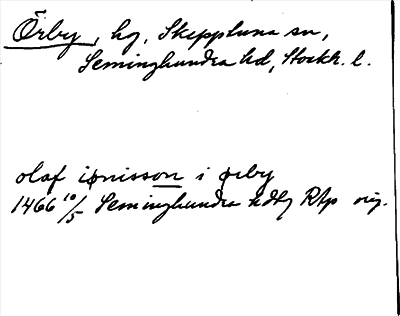 Örby, hg, Skepptuna sn,
Seminghundra hd, Stockh. l.
olaf iønisson i ørby
1466 10/5 Seminghundra hdtg RAp orig.